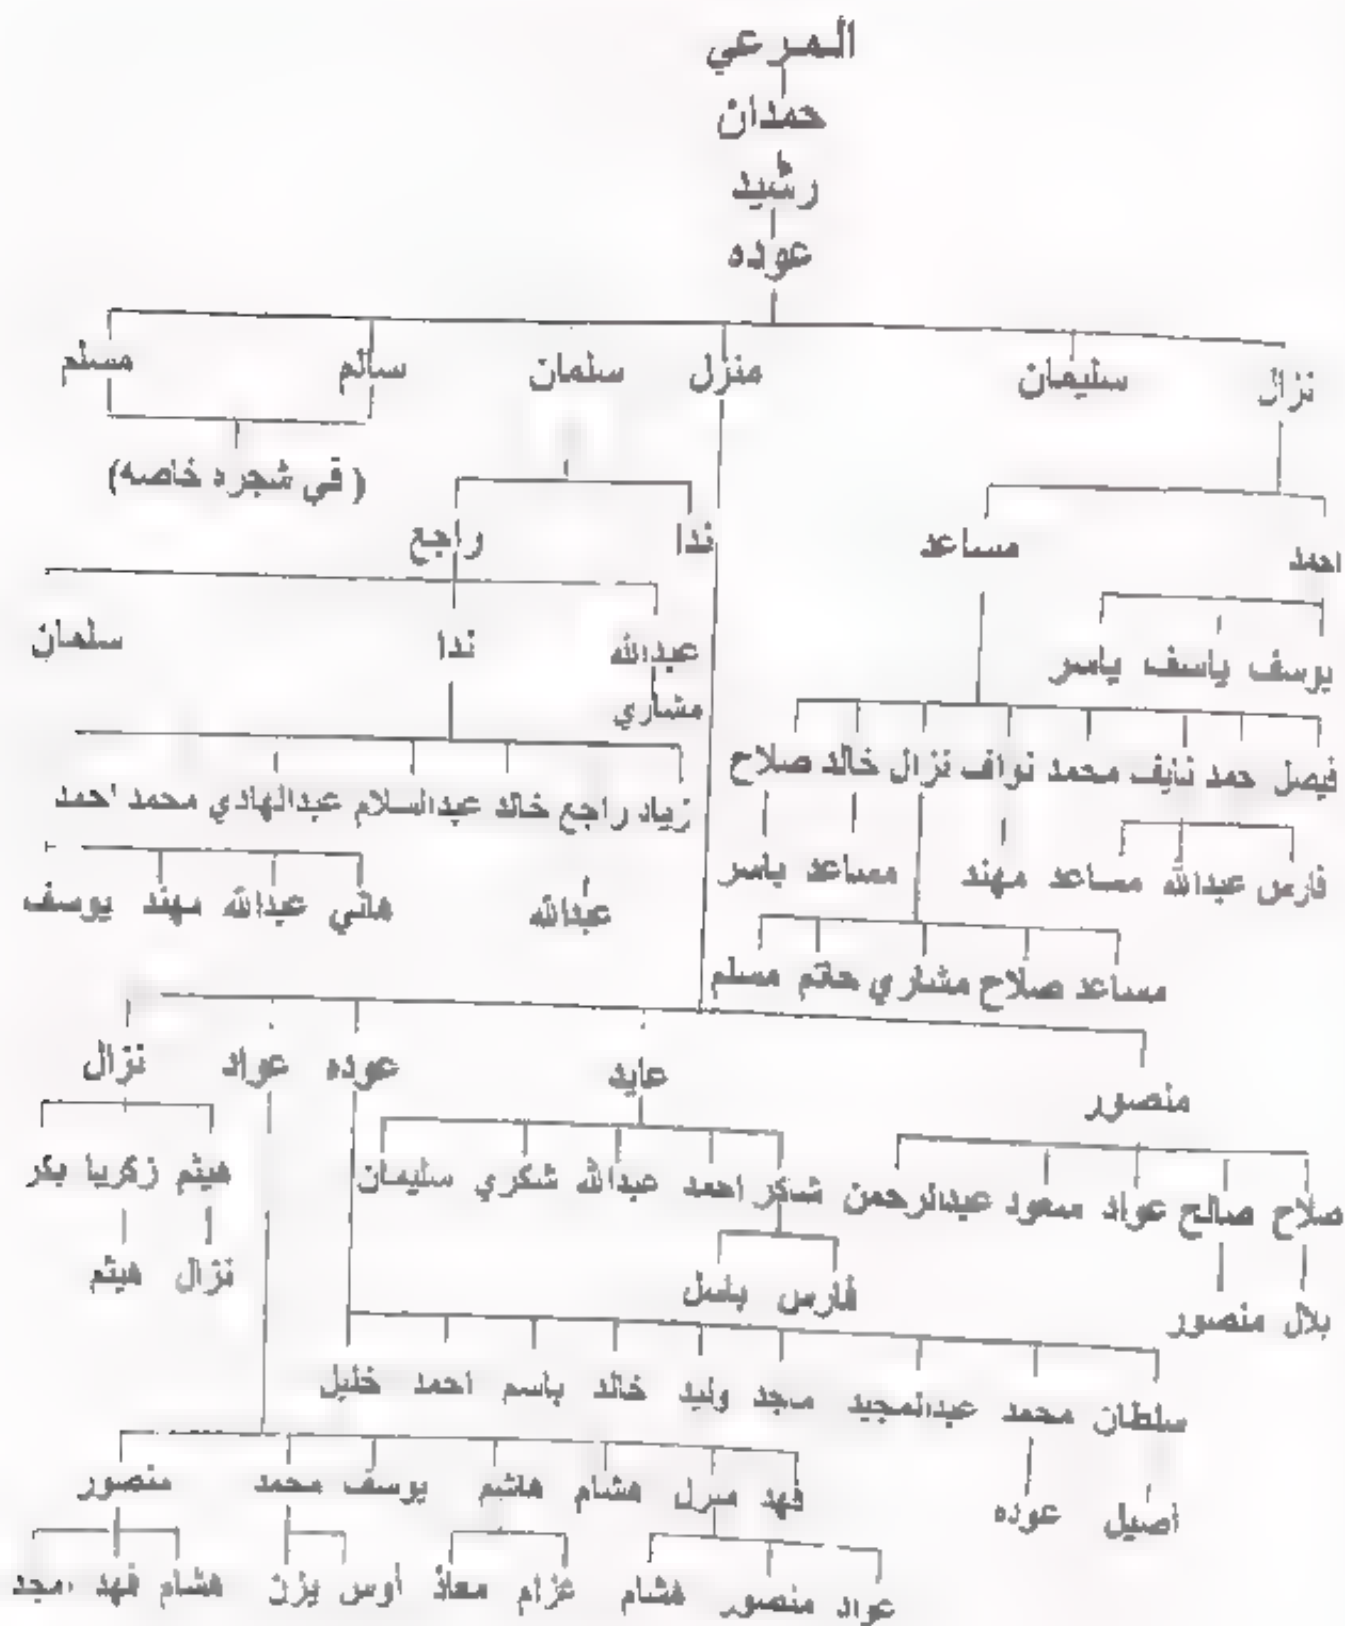 المرعي
حمدان
رشيد
عوده
نزال سليمان منزل سلمان سالم مسلم
(في شجره خاصه)
احمد مساعد ندا راجع
يوسف ياسف ياسر عبدالله ندا سلمان
مشاري
فيصل حمد نايف محمد نواف نزال خالد صلاح
زياد راجع خالد عبدالسلام عبدالهادي محمد احمد
فارس عبدالله مساعد مهند مساعد ياسر
عبدالله هاني عبدالله مهند يوسف
مساعد صلاح مشاري حاتم مسلم
منصور عايد عوده عواد نزال
صلاح صالح عواد مسعود عبدالرحمن شاكر احمد عبدالله شكري سليمان هيثم زكريا بكر
بلال منصور فارس باسل نزال هيثم
سلطان محمد عبدالمجيد ماجد وليد خالد باسم احمد خليل
اصيل عوده
فهد منزل هشام هاشم يوسف محمد منصور
عواد منصور هشام عزام معاذ أوس يزن هشام فهد امجد